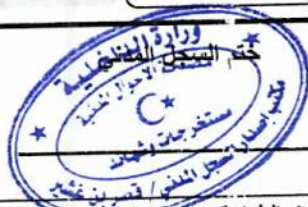 ختم السجل المدني
وزارة الداخلية
مصلحة الأحوال المدنية
مستخرجات وشهائد
مكتب إصدار السجل المدني / قصر بن غشير